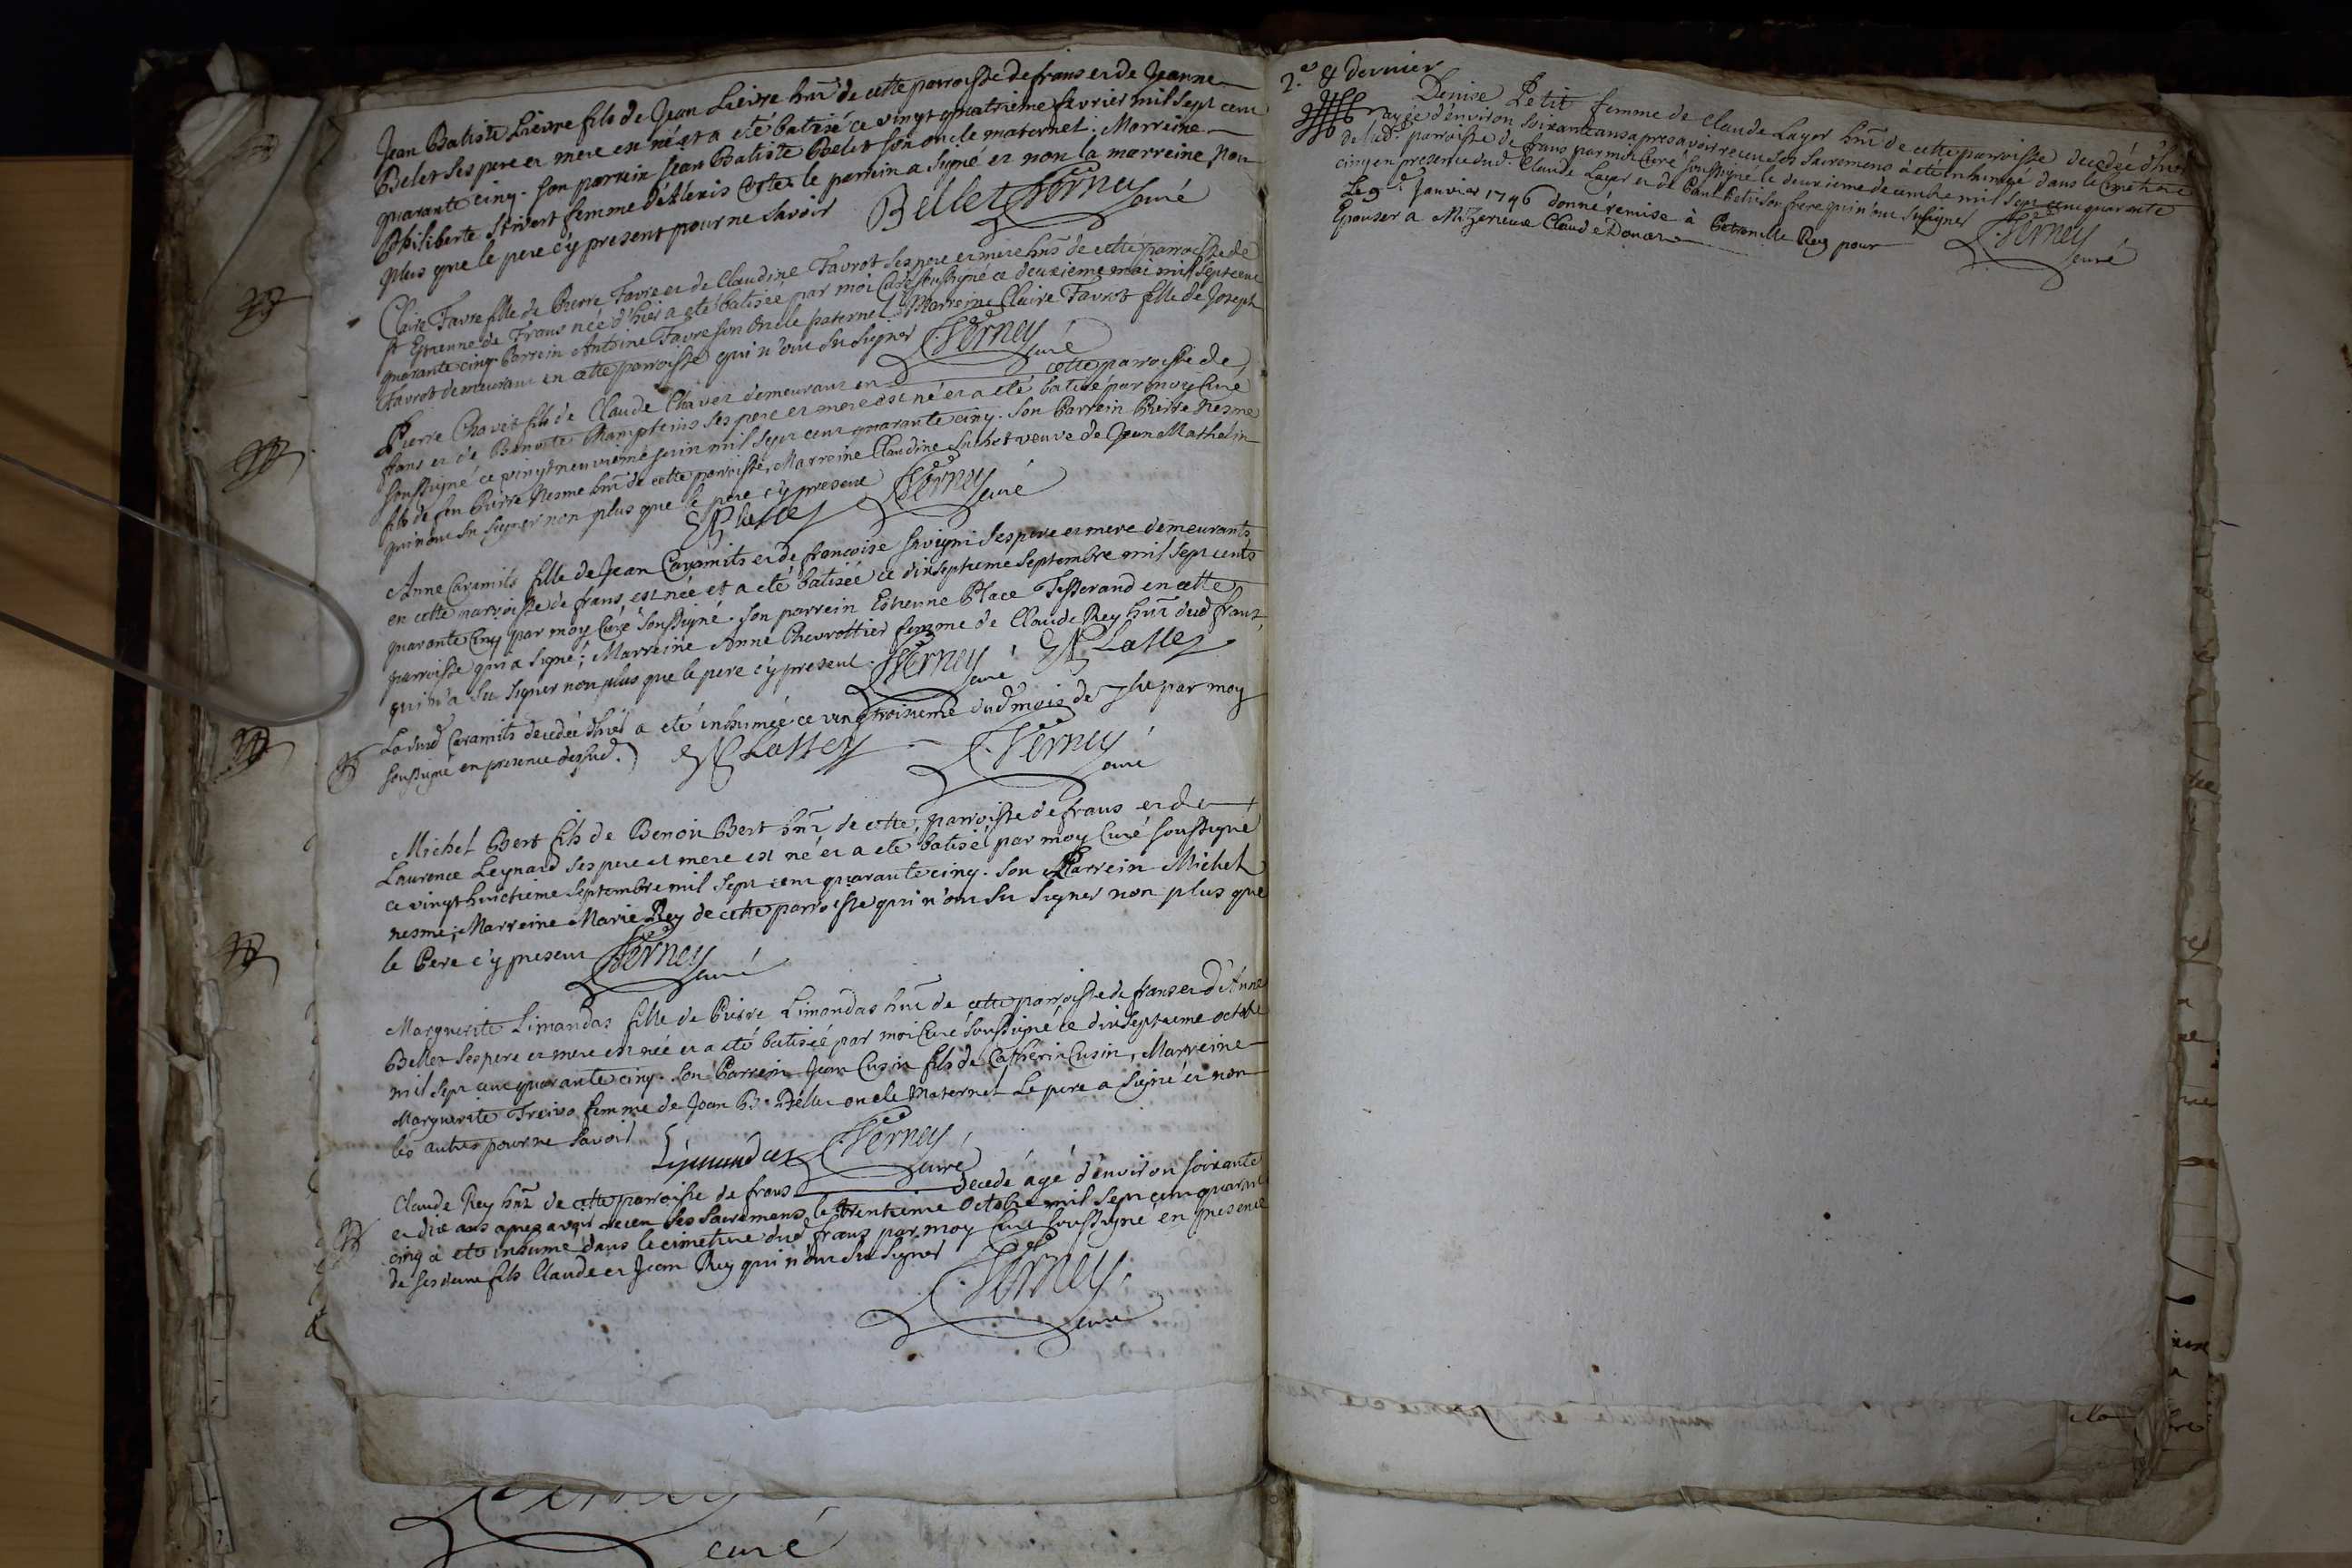 Jean Batiste Lievre fils de Jean Lievre hnt de cette parroisse de frans et de Jeanne
Belet ses pere et mere est né et a eté batisé ce vingt quatrieme fevrier mil sept cent
quarante cinq. Son parrein Jean Batiste Belet son oncle maternel; Marreine
Philiberte femme d'Alexis le parrein a signé et non la marreine non
plus que le pere c'y present pour ne savoir Bellet Verney
curé
Claire Favre fille de Pierre Favre et de Claudine Favrot ses pere et mere hnts de cette parroisse de
st Etienne de Frans née d'hier a eté batisée par moi Curé soussigné ce deuxieme mai mil sept cent
quarante cinq. Parrein Antoine Favre son Oncle paternel, Marreine Claire Favrot fille de Joseph
Favrot demeurant en cette parroisse qui n'ont su signer Verney
curé
Pierre Chavet fils de Claude Chavet demeurant en cette parroisse de
frans et de Benoite ses pere et mere est né et a eté batisé par moy Curé
soussigné ce vingt neuvieme juin mil sept cent quarante cinq. Son Parrein Pierre Nesme
fils de feu Pierre Nesme hnt de cette parroisse, Marreine Claudine Suchet veuve de Jean Mathelin
qui n'ont su signer non plus que le pere c'y present Verney
curé
Anne Caramits fille de Jean Caramits et de francoise Savigni ses pere et mere demeurants
en cette parroisse de frans, est née et a eté batisée ce dixseptieme Septembre mil sept cents
quarante Cinq par moy Curé soussigné. Son parrein Estienne Place Tisserand en cette
parroisse qui a signé; Marreine Anne Chevrottier femme de Claude Rey hnt dud frans,
qui n'a su signer non plus que le pere c'y present. Verney
curé
Lasusd Caramits decedée d'hier a eté inhumée ce vingtroisieme dud mois de 7bre par moy
soussigné en presence dessusd. Verney
curé
Michel Bert fils de Benoit Bert hnt de cette parroisse de frans et de
Laurence Leynard ses pere et mere est né et a eté batisé par moy Curé soussigné
ce vingt huictieme Septembre mil sept cent quarante cinq. Son Parrein Michel
nesme; Marreine Marie Rey de cette parroisse qui n'ont su signer non plus que
le Pere c'y present Verney
curé
Marguerite Limandas fille de Pierre Limandas hnt de cette parroisse de frans et d'Anne
Bellet ses pere et mere est née et a eté batisée par moi Curé soussigné ce dixseptieme octobre
mil sept cent quarante cinq. Son Parrein Jean Cusin fils de Catherin Cusin, Marreine
Marguerite Treivo femme de Jean Bte Bellet oncle Maternel Le pere a signé et non
les autres pour ne savoir Limandas Verney
curé
Claude Rey hnt de cette parroisse de frans decedé agé d'environ soixante
et dix ans apres avoir receu ses Sacremens, le trentieme Octobre mil sept cent quarante
cinq a eté inhumé dans le cimetiere dud frans par moy Curé soussigné en presence
de ses deux fils Claude et Jean Rey qui n'ont su signer Verney
curé
2.e et dernier
Denise Petit femme de Claude Layer hnt de cette parroisse decedée d'hier
agée d'environ soixante ans apres avoir receu ses Sacremens à eté inhumée dans le Cimetiere
de lad. parroisse de frans par moi Curé soussigné le deuxieme decembre mil sept cent quarante
cinq en presence dud. Claude Layer et de Paul Petit son frere qui n'ont su signer
Verney
curé
Le 9e. Janvier 1746 donné remise à Petronille Rey pour
Epouser a Mizerieux Claude
Verney
curé